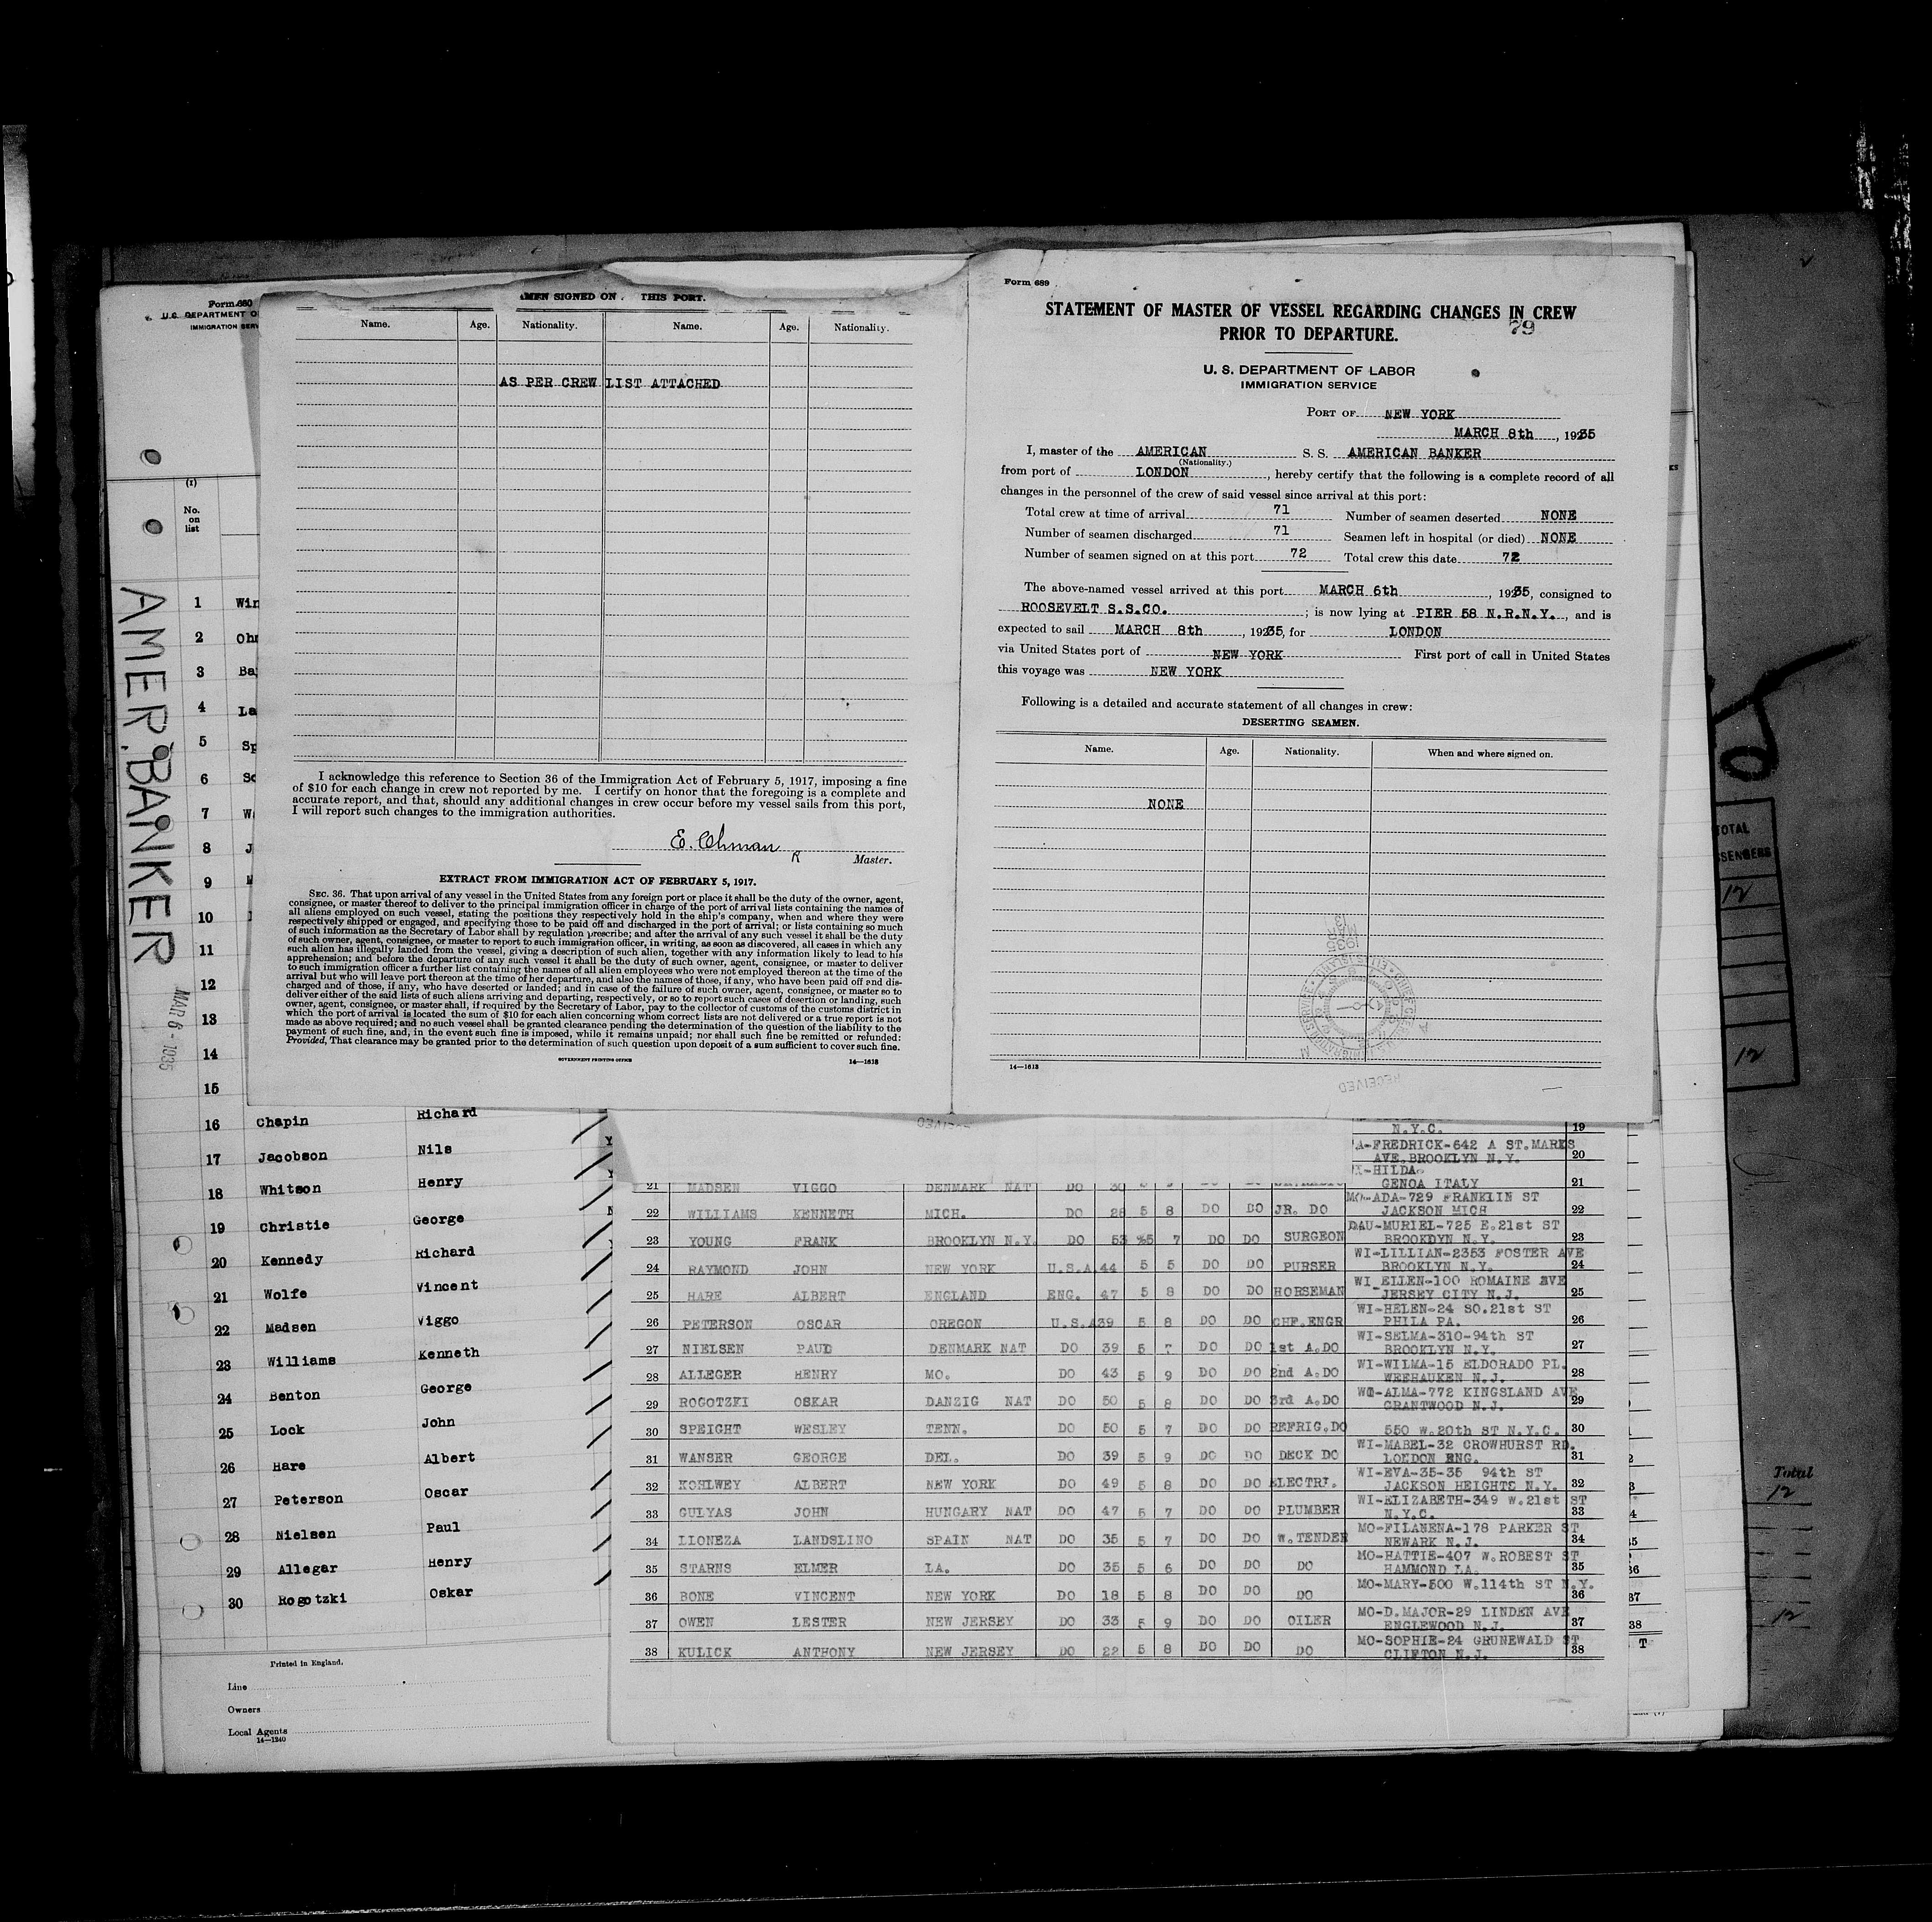 Form 680
U.S. DEPARTMENT O
IMMIGRATION SERV
(1)
No. on list
AMER. BANKER
MAR 6 - 1935
1 Win
2 Ohm
3 Ba
4 La
5 Sp
6 Sc
7 W
8 J
9
10
11
12
13
14
15
16 Chapin Richard
17 Jacobson Nils
18 Whitson Henry
19 Christie George
20 Kennedy Richard
21 Wolfe Vincent
22 Madsen Viggo
23 Williams Kenneth
24 Benton George
25 Lock John
26 Hare Albert
27 Peterson Oscar
28 Nielsen Paul
29 Allegar Henry
30 Rogotzki Oskar
Printed in England.
Line
Owners
Local Agents
14—1240
AMEN SIGNED ON THIS PORT.
Name. Age. Nationality. Name. Age. Nationality.
AS PER CREW LIST ATTACHED
I acknowledge this reference to Section 36 of the Immigration Act of February 5, 1917, imposing a fine
of $10 for each change in crew not reported by me. I certify on honor that the foregoing is a complete and
accurate report, and that, should any additional changes in crew occur before my vessel sails from this port,
I will report such changes to the immigration authorities.
E. Ohman
R Master.
EXTRACT FROM IMMIGRATION ACT OF FEBRUARY 5, 1917.
SEC. 36. That upon arrival of any vessel in the United States from any foreign port or place it shall be the duty of the owner, agent,
consignee, or master thereof to deliver to the principal immigration officer in charge of the port of arrival lists containing the names of
all aliens employed on such vessel, stating the positions they respectively hold in the ship's company, when and where they were
respectively shipped or engaged, and specifying those to be paid off and discharged in the port of arrival; or lists containing so much
of such information as the Secretary of Labor shall by regulation prescribe; and after the arrival of any such vessel it shall be the duty
of such owner, agent, consignee, or master to report to such immigration officer, in writing, as soon as discovered, all cases in which any
such alien has illegally landed from the vessel, giving a description of such alien, together with any information likely to lead to his
apprehension; and before the departure of any such vessel it shall be the duty of such owner, agent, consignee, or master to deliver
to such immigration officer a further list containing the names of all alien employees who were not employed thereon at the time of the
arrival but who will leave port thereon at the time of her departure, and also the names of those, if any, who have been paid off and dis-
charged and of those, if any, who have deserted or landed; and in case of the failure of such owner, agent, consignee, or master so to
deliver either of the said lists of such aliens arriving and departing, respectively, or so to report such cases of desertion or landing, such
owner, agent, consignee, or master shall, if required by the Secretary of Labor, pay to the collector of customs of the customs district in
which the port of arrival is located the sum of $10 for each alien concerning whom correct lists are not delivered or a true report is not
made as above required; and no such vessel shall be granted clearance pending the determination of the question of the liability to the
payment of such fine, and, in the event such fine is imposed, while it remains unpaid; nor shall such fine be remitted or refunded:
Provided, That clearance may be granted prior to the determination of such question upon deposit of a sum sufficient to cover such fine.
GOVERNMENT PRINTING OFFICE 14—1618
Form 689
STATEMENT OF MASTER OF VESSEL REGARDING CHANGES IN CREW
PRIOR TO DEPARTURE.
79
U. S. DEPARTMENT OF LABOR
IMMIGRATION SERVICE
PORT OF NEW YORK
MARCH 8th, 1935
I, master of the AMERICAN S. S. AMERICAN BANKER
(Nationality.)
from port of LONDON, hereby certify that the following is a complete record of all
changes in the personnel of the crew of said vessel since arrival at this port:
Total crew at time of arrival 71 Number of seamen deserted NONE
Number of seamen discharged 71 Seamen left in hospital (or died) NONE
Number of seamen signed on at this port 72 Total crew this date 72
The above-named vessel arrived at this port MARCH 6th, 1935, consigned to
ROOSEVELT S.S.CO.; is now lying at PIER 58 N.R.N.Y., and is
expected to sail MARCH 8th, 1935, for LONDON
via United States port of NEW YORK First port of call in United States
this voyage was NEW YORK
Following is a detailed and accurate statement of all changes in crew:
DESERTING SEAMEN.
Name. Age. Nationality. When and where signed on.
NONE
1935 MAR 13
RECEIVED
14—1618
N.Y.C. 19
A-FREDRICK-642 A ST.MARKS
AVE.BROOKLYN N.Y. 20
X-HILDA
21 MADSEN VIGGO DENMARK NAT DO 30 GENOA ITALY 21
MO-ADA-729 FRANKLIN ST
22 WILLIAMS KENNETH MICH. DO 28 5 8 DO DO JR. DO JACKSON MICH 22
DAU-MURIEL-725 E.21st ST
23 YOUNG FRANK BROOKLYN N.Y. DO 53 %5 7 DO DO SURGEON BROOKDYN N.Y. 23
WI-LILLIAN-2353 FOSTER AVE
24 RAYMOND JOHN NEW YORK U.S.A. 44 5 5 DO DO PURSER BROOKLYN N.Y. 24
WI ELLEN-100 ROMAINE AVE
25 HARE ALBERT ENGLAND ENG. 47 5 8 DO DO HORSEMAN JERSEY CITY N.J. 25
WI-HELEN-24 SO.21st ST
26 PETERSON OSCAR OREGON U.S.A 39 5 8 DO DO CHF.ENGR PHILA PA. 26
WI-SELMA-310-94th ST
27 NIELSEN PAUL DENMARK NAT DO 39 5 7 DO DO 1st A.DO BROOKLYN N.Y. 27
WI-WILMA-15 ELDORADO PL.
28 ALLEGER HENRY MO. DO 43 5 9 DO DO 2nd A.DO WEEHAUKEN N.J. 28
WI-ALMA-772 KINGSLAND AVE
29 ROGOTZKI OSKAR DANZIG NAT DO 50 5 8 DO DO 3rd A.DO GRANTWOOD N.J. 29
30 SPEIGHT WESLEY TENN. DO 50 5 7 DO DO REFRIG.DO 550 W.20th ST N.Y.C. 30
WI-MABEL-32 CROWHURST RD.
31 WANSER GEORGE DEL. DO 39 5 9 DO DO DECK DO LONDON ENG. 31
WI-EVA-35-35 94th ST
32 KOHLWEY ALBERT NEW YORK DO 49 5 8 DO DO ELECTRI. JACKSON HEIGHTS N.Y. 32
WI-ELIZABETH-349 W.21st ST
33 GULYAS JOHN HUNGARY NAT DO 47 5 7 DO DO PLUMBER N.Y.C. 33
MO-FILANENA-178 PARKER ST
34 LIONEZA LANDSLINO SPAIN NAT DO 35 5 7 DO DO W.TENDER NEWARK N.J. 34
MO-HATTIE-407 W.ROBEST ST
35 STARNS ELMER LA. DO 35 5 6 DO DO DO HAMMOND LA. 35
MO-MARY-500 W.114th ST N.Y.
36 BONE VINCENT NEW YORK DO 18 5 8 DO DO DO 36
MO-D.MAJOR-29 LINDEN AVE
37 OWEN LESTER NEW JERSEY DO 33 5 9 DO DO OILER ENGLEWOOD N.J. 37
MO-SOPHIE-24 GRUNEWALD ST
38 KULICK ANTHONY NEW JERSEY DO 22 5 8 DO DO DO CLIFTON N.J. 38
TOTAL
SSENGERS
12
12
Total
12
12